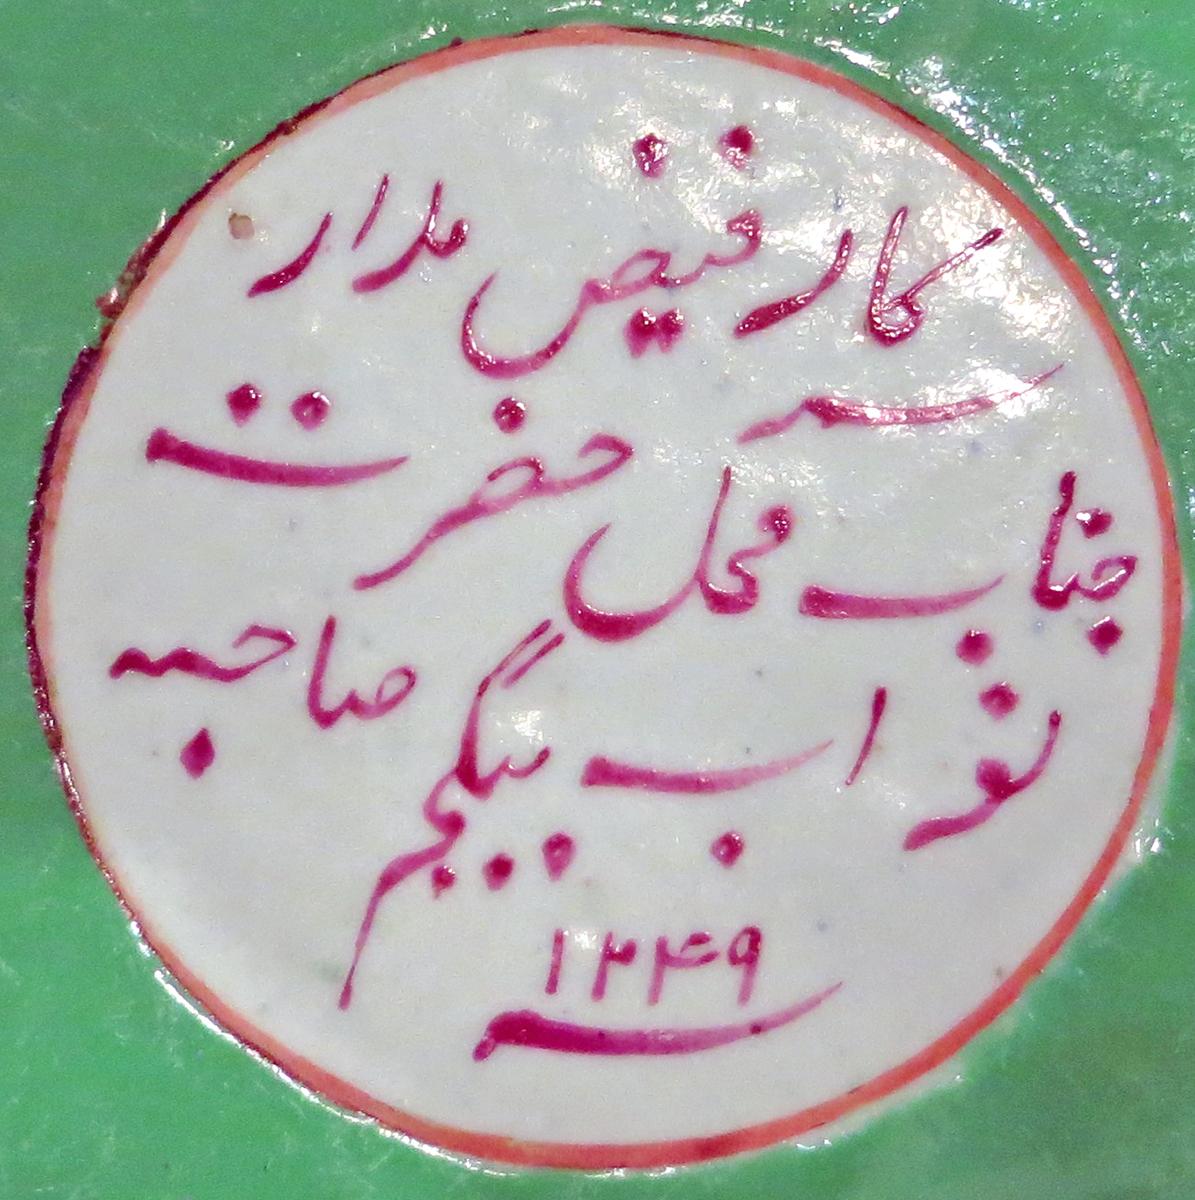 سرکار فیض مدار
جناب محل حضرت
نواب بیگم صاحبه
۱۲۴۹